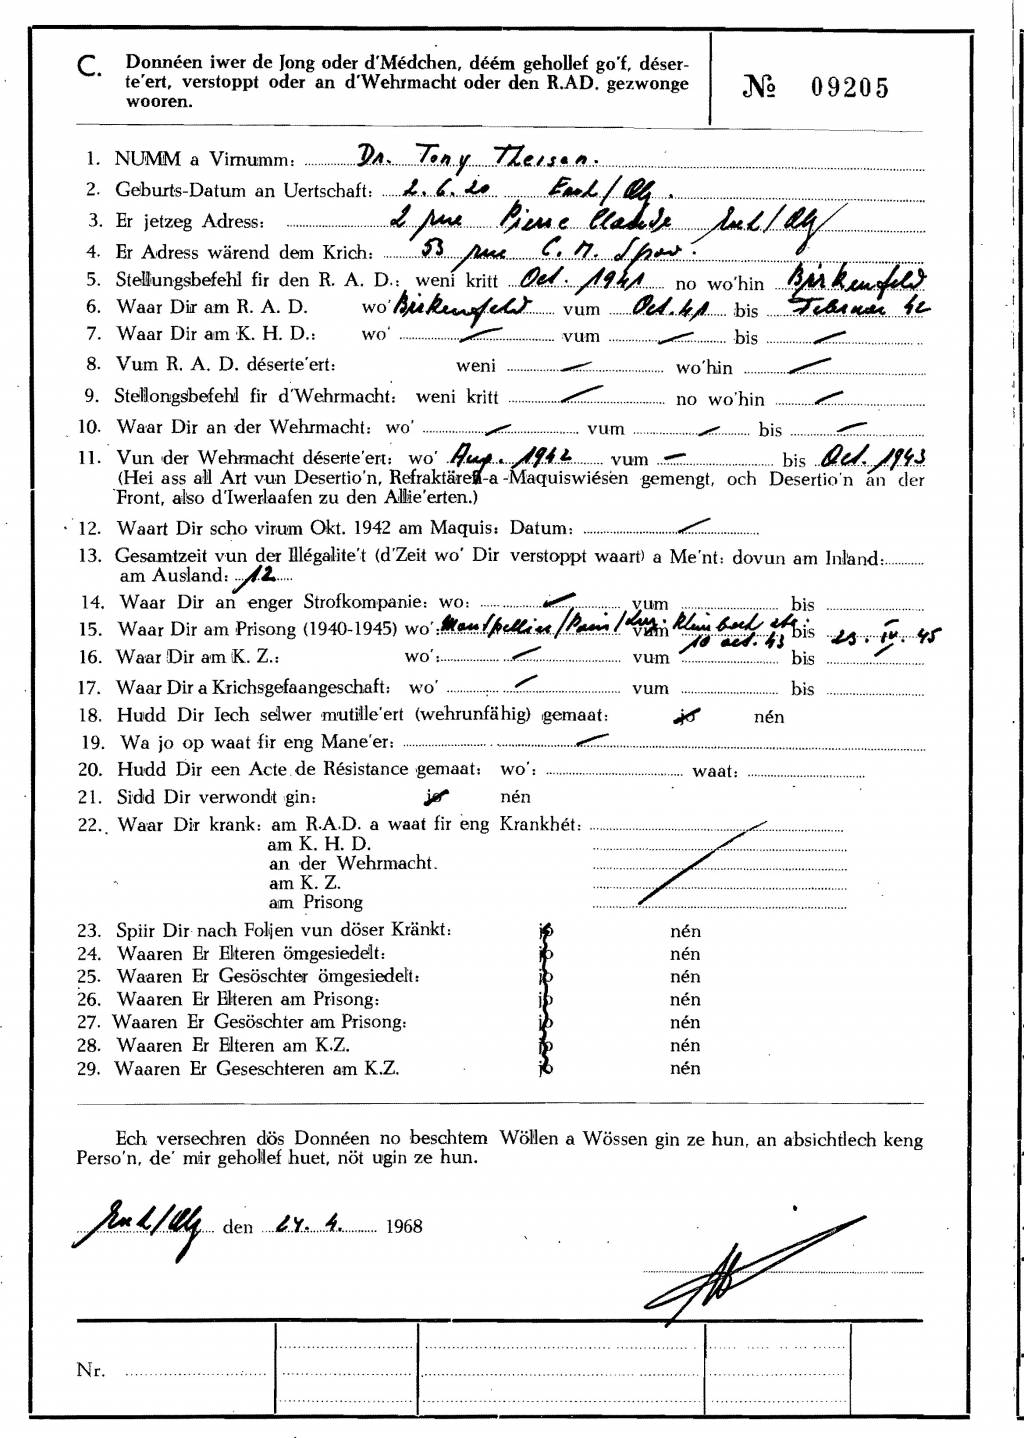 C. Donnéen iwer de Jong oder d'Médchen, déém gehollef go'f, déser-
te'ert, verstoppt oder an d'Wehrmacht oder den R.AD. gezwonge
wooren.
№ 09205
1. NUMM a Virnumm: Dr. Tony Theisen.
2. Geburts-Datum an Uertschaft: 2.6.20 Esch/Alz.
3. Er jetzeg Adress: 2 rue Pierre Claude Esch/Alz
4. Er Adress wärend dem Krich: 53 rue C. M. Spoo.
5. Stellungsbefehl fir den R. A. D.: weni kritt Oct. 1941 no wo'hin Birkenfeld
6. Waar Dir am R. A. D. wo' Birkenfeld vum Oct. 41 bis Februar 42
7. Waar Dir am K. H. D.: wo' — vum — bis —
8. Vum R. A. D. déserte'ert: weni — wo'hin —
9. Stellongsbefehl fir d'Wehrmacht: weni kritt — no wo'hin —
10. Waar Dir an der Wehrmacht: wo' — vum — bis —
11. Vun der Wehrmacht déserte'ert: wo' Aug. 1942 vum — bis Oct. 1943
(Hei ass all Art vun Desertio'n, Refraktären-a-Maquiswiésen gemengt, och Desertio'n an der
Front, also d'Iwerlaafen zu den Allie'erten.)
12. Waart Dir scho virum Okt. 1942 am Maquis: Datum: —
13. Gesamtzeit vun der Illégalite't (d'Zeit wo' Dir verstoppt waart) a Me'nt: dovun am Inland:
am Ausland: 12
14. Waar Dir an enger Strofkompanie: wo: — vum bis
15. Waar Dir am Prisong (1940-1945) wo': Montpellier/Paris/ vum 10 oct. 43 bis 23. IV. 45
16. Waar Dir am K. Z.: wo': — vum bis —
17. Waar Dir a Krichsgefaangeschaft: wo' — vum bis
18. Hudd Dir Iech selwer mutille'ert (wehrunfähig) gemaat: jo nén
19. Wa jo op waat fir eng Mane'er: —
20. Hudd Dir een Acte de Résistance gemaat: wo': waat:
21. Sidd Dir verwondt gin: jo nén
22. Waar Dir krank: am R.A.D. a waat fir eng Krankhét:
am K. H. D.
an der Wehrmacht.
am K. Z.
am Prisong
23. Spiir Dir nach Foljen vun döser Kränkt: jo nén
24. Waaren Er Elteren ömgesiedelt: jo nén
25. Waaren Er Gesöschter ömgesiedelt: jo nén
26. Waaren Er Elteren am Prisong: jo nén
27. Waaren Er Gesöschter am Prisong: jo nén
28. Waaren Er Elteren am K.Z. jo nén
29. Waaren Er Geseschteren am K.Z. jo nén
Ech versechren dös Donnéen no beschtem Wöllen a Wössen gin ze hun, an absichtlech keng
Perso'n, de' mir gehollef huet, nöt ugin ze hun.
Esch/Alz den 24. 4. 1968
Nr.